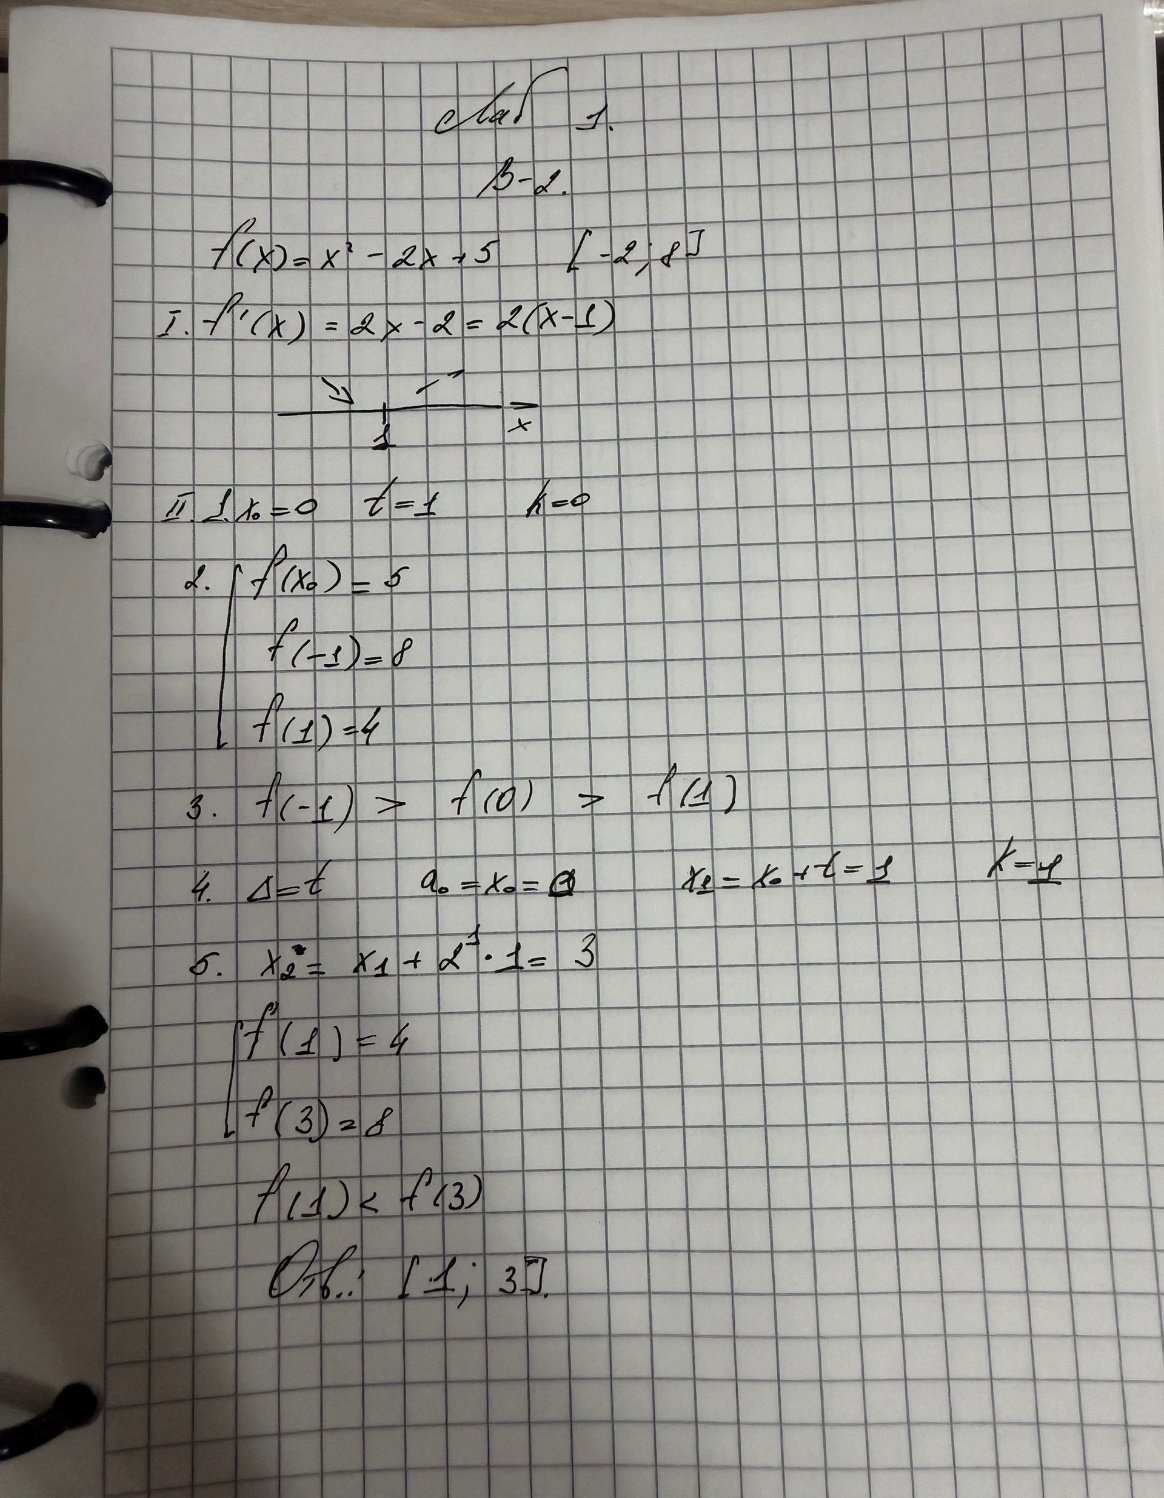 Лаб 1.
В-2.
f(x) = x² - 2x + 5 [-2; 8]
I. f'(x) = 2x - 2 = 2(x-1)
1 x
II. 1. x₀ = 0 t = 1 k = 0
2. f(x₀) = 5
f(-1) = 8
f(1) = 4
3. f(-1) > f(0) > f(1)
4. Δ = t a₀ = x₀ = 0 x₁ = x₀ + t = 1 k = 1
5. x₂ = x₁ + 2¹ · 1 = 3
f(1) = 4
f(3) = 8
f(1) < f(3)
Отв.: [1; 3].